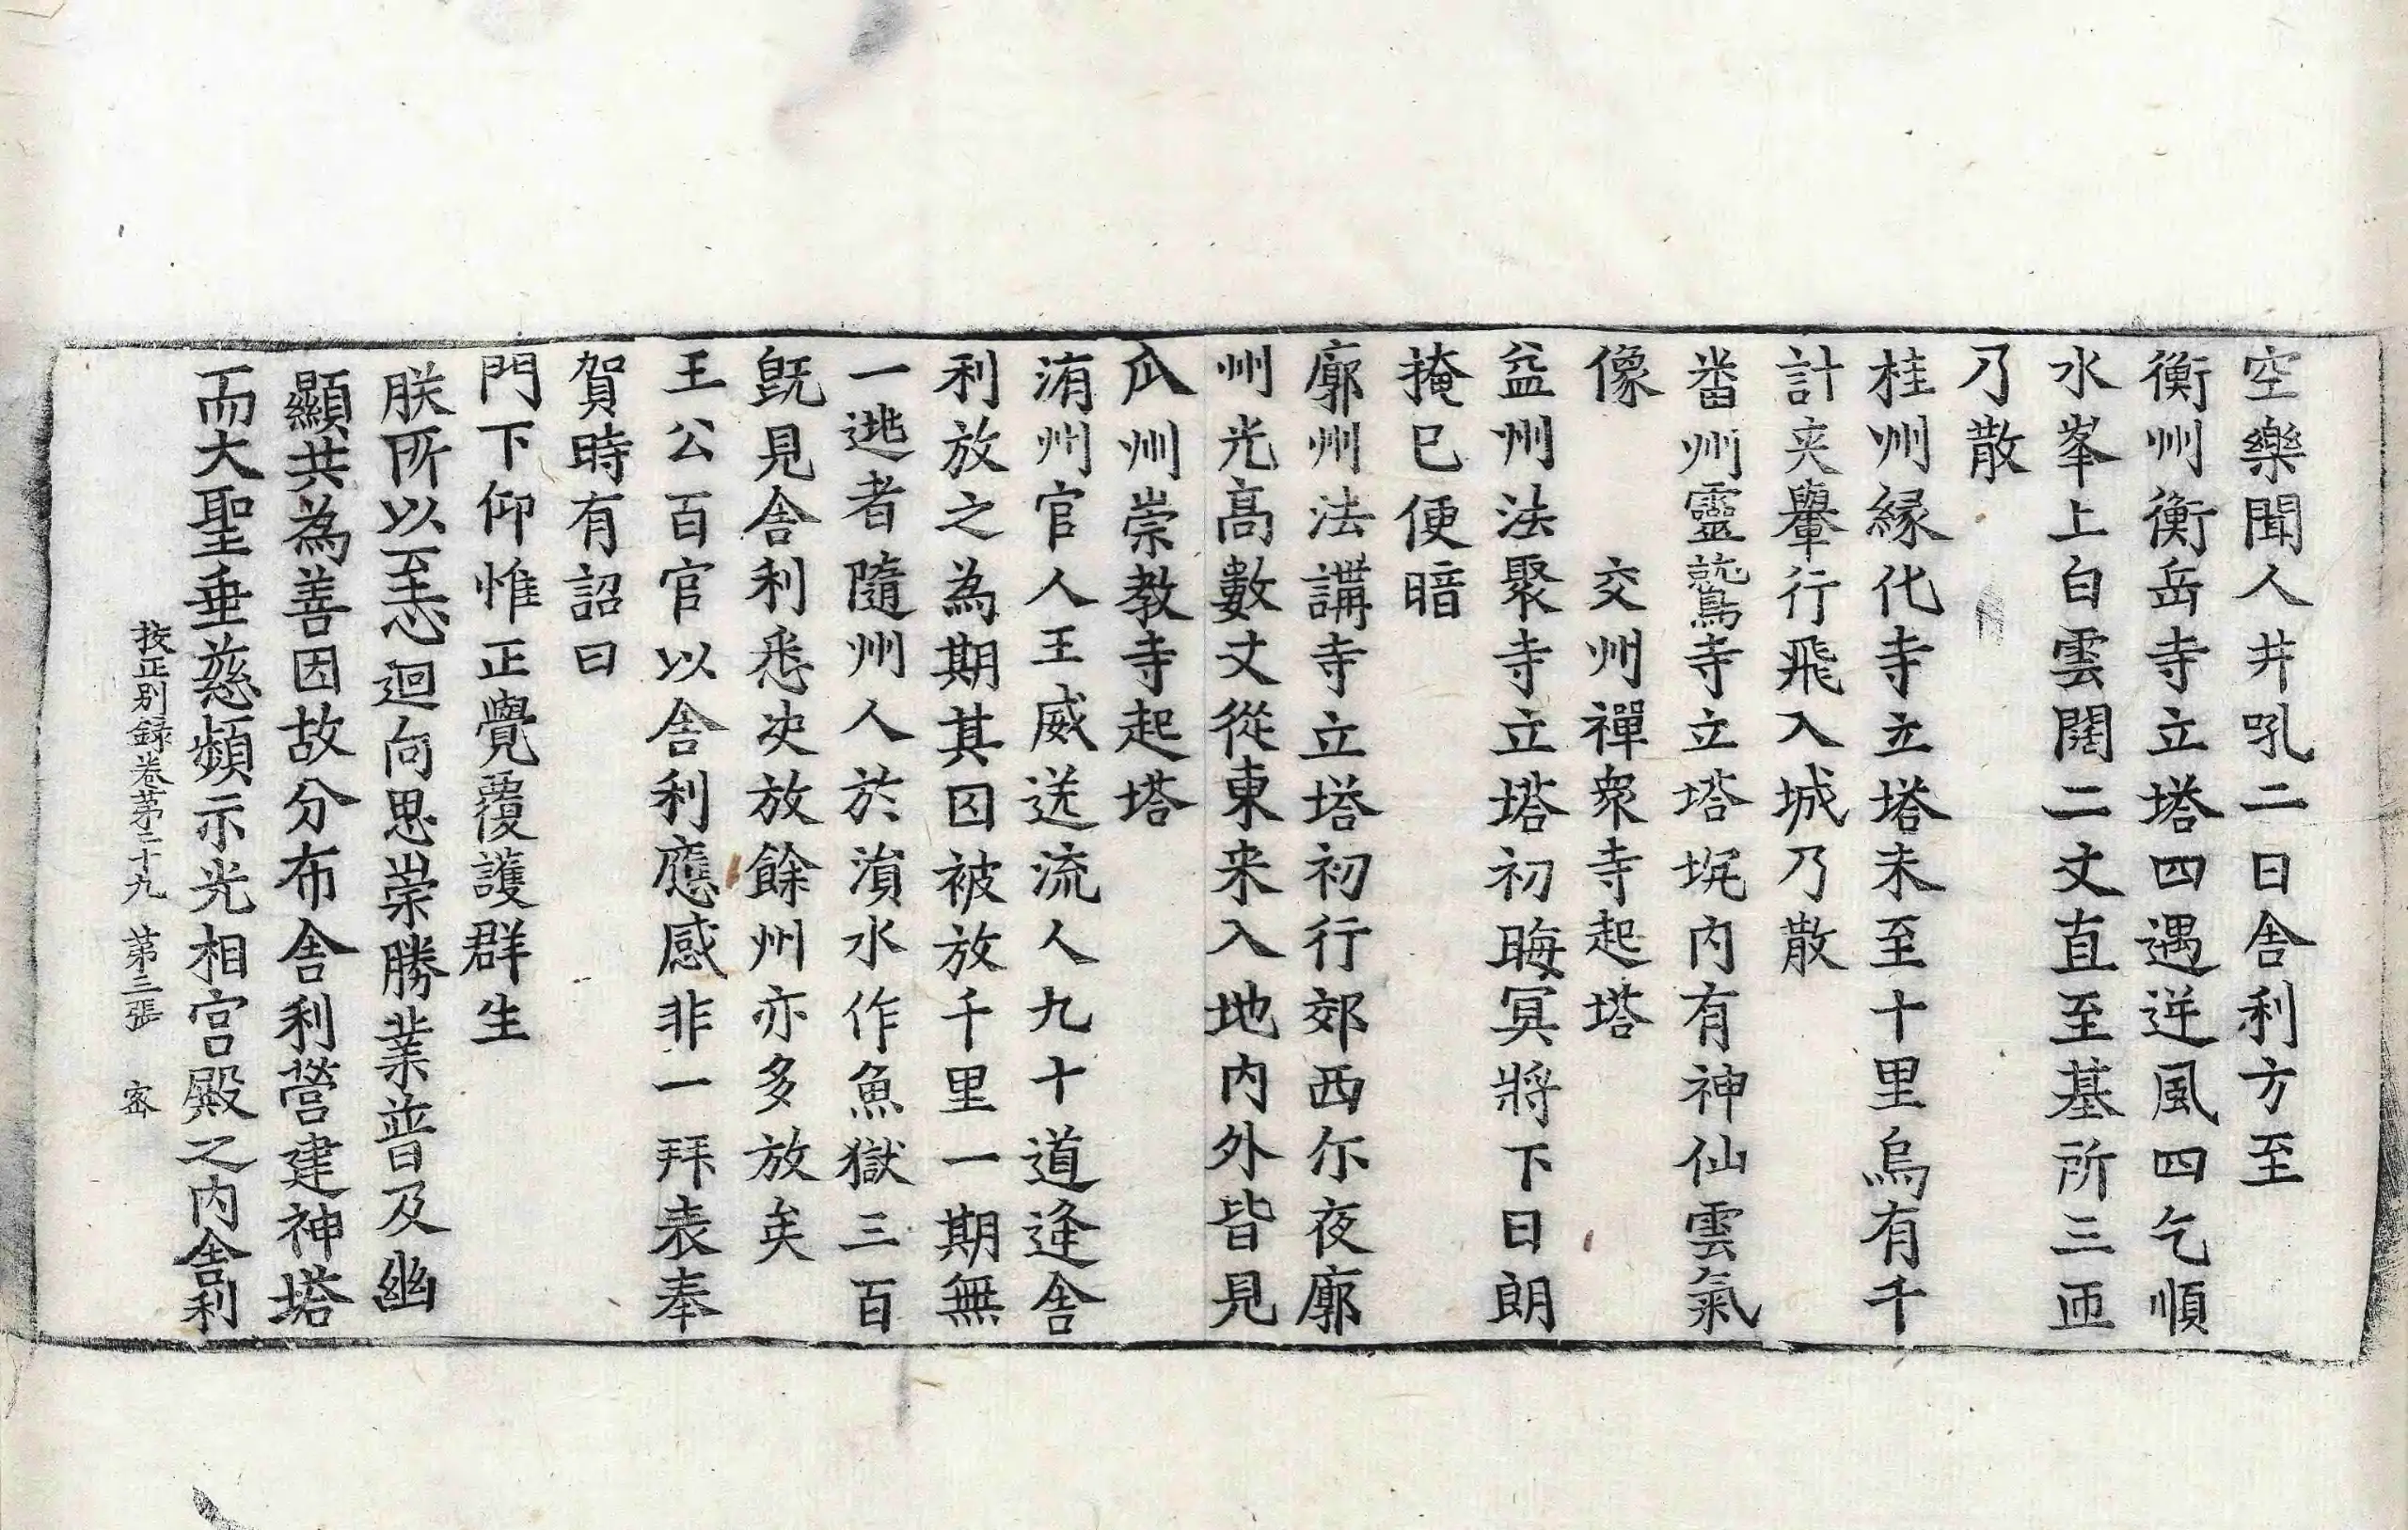 空樂聞人井吼二日舍利方至
衡州衡岳寺立塔四遇逆風四乞順
水峯上白雲闊二丈直至基所三匝
乃散
桂州緣化寺立塔未至十里烏有千
計夾轝行飛入城乃散
番州靈鷲寺立塔坑內有神仙雲氣
像　　交州禪衆寺起塔
益州法聚寺立塔初晦冥將下日朗
掩已便暗
廓州法講寺立塔初行郊西尒夜廓
州光高數丈從東来入地內外皆見
瓜州崇教寺起塔
洧州官人王威送流人九十道逢舍
利放之為期其囚被放千里一期無
一逃者隨州人於溳水作魚獄三百
旣見舍利悉决放餘州亦多放矣
王公百官以舍利應感非一拜表奉
賀時有詔曰
門下仰惟正覺覆護群生
朕所以至心迴向思崇勝業普及幽
顯共為善因故分布舍利營建神塔
而大聖垂慈頻示光相宫殿之內舍利
挍正別録卷苐二十九　第三張　宻